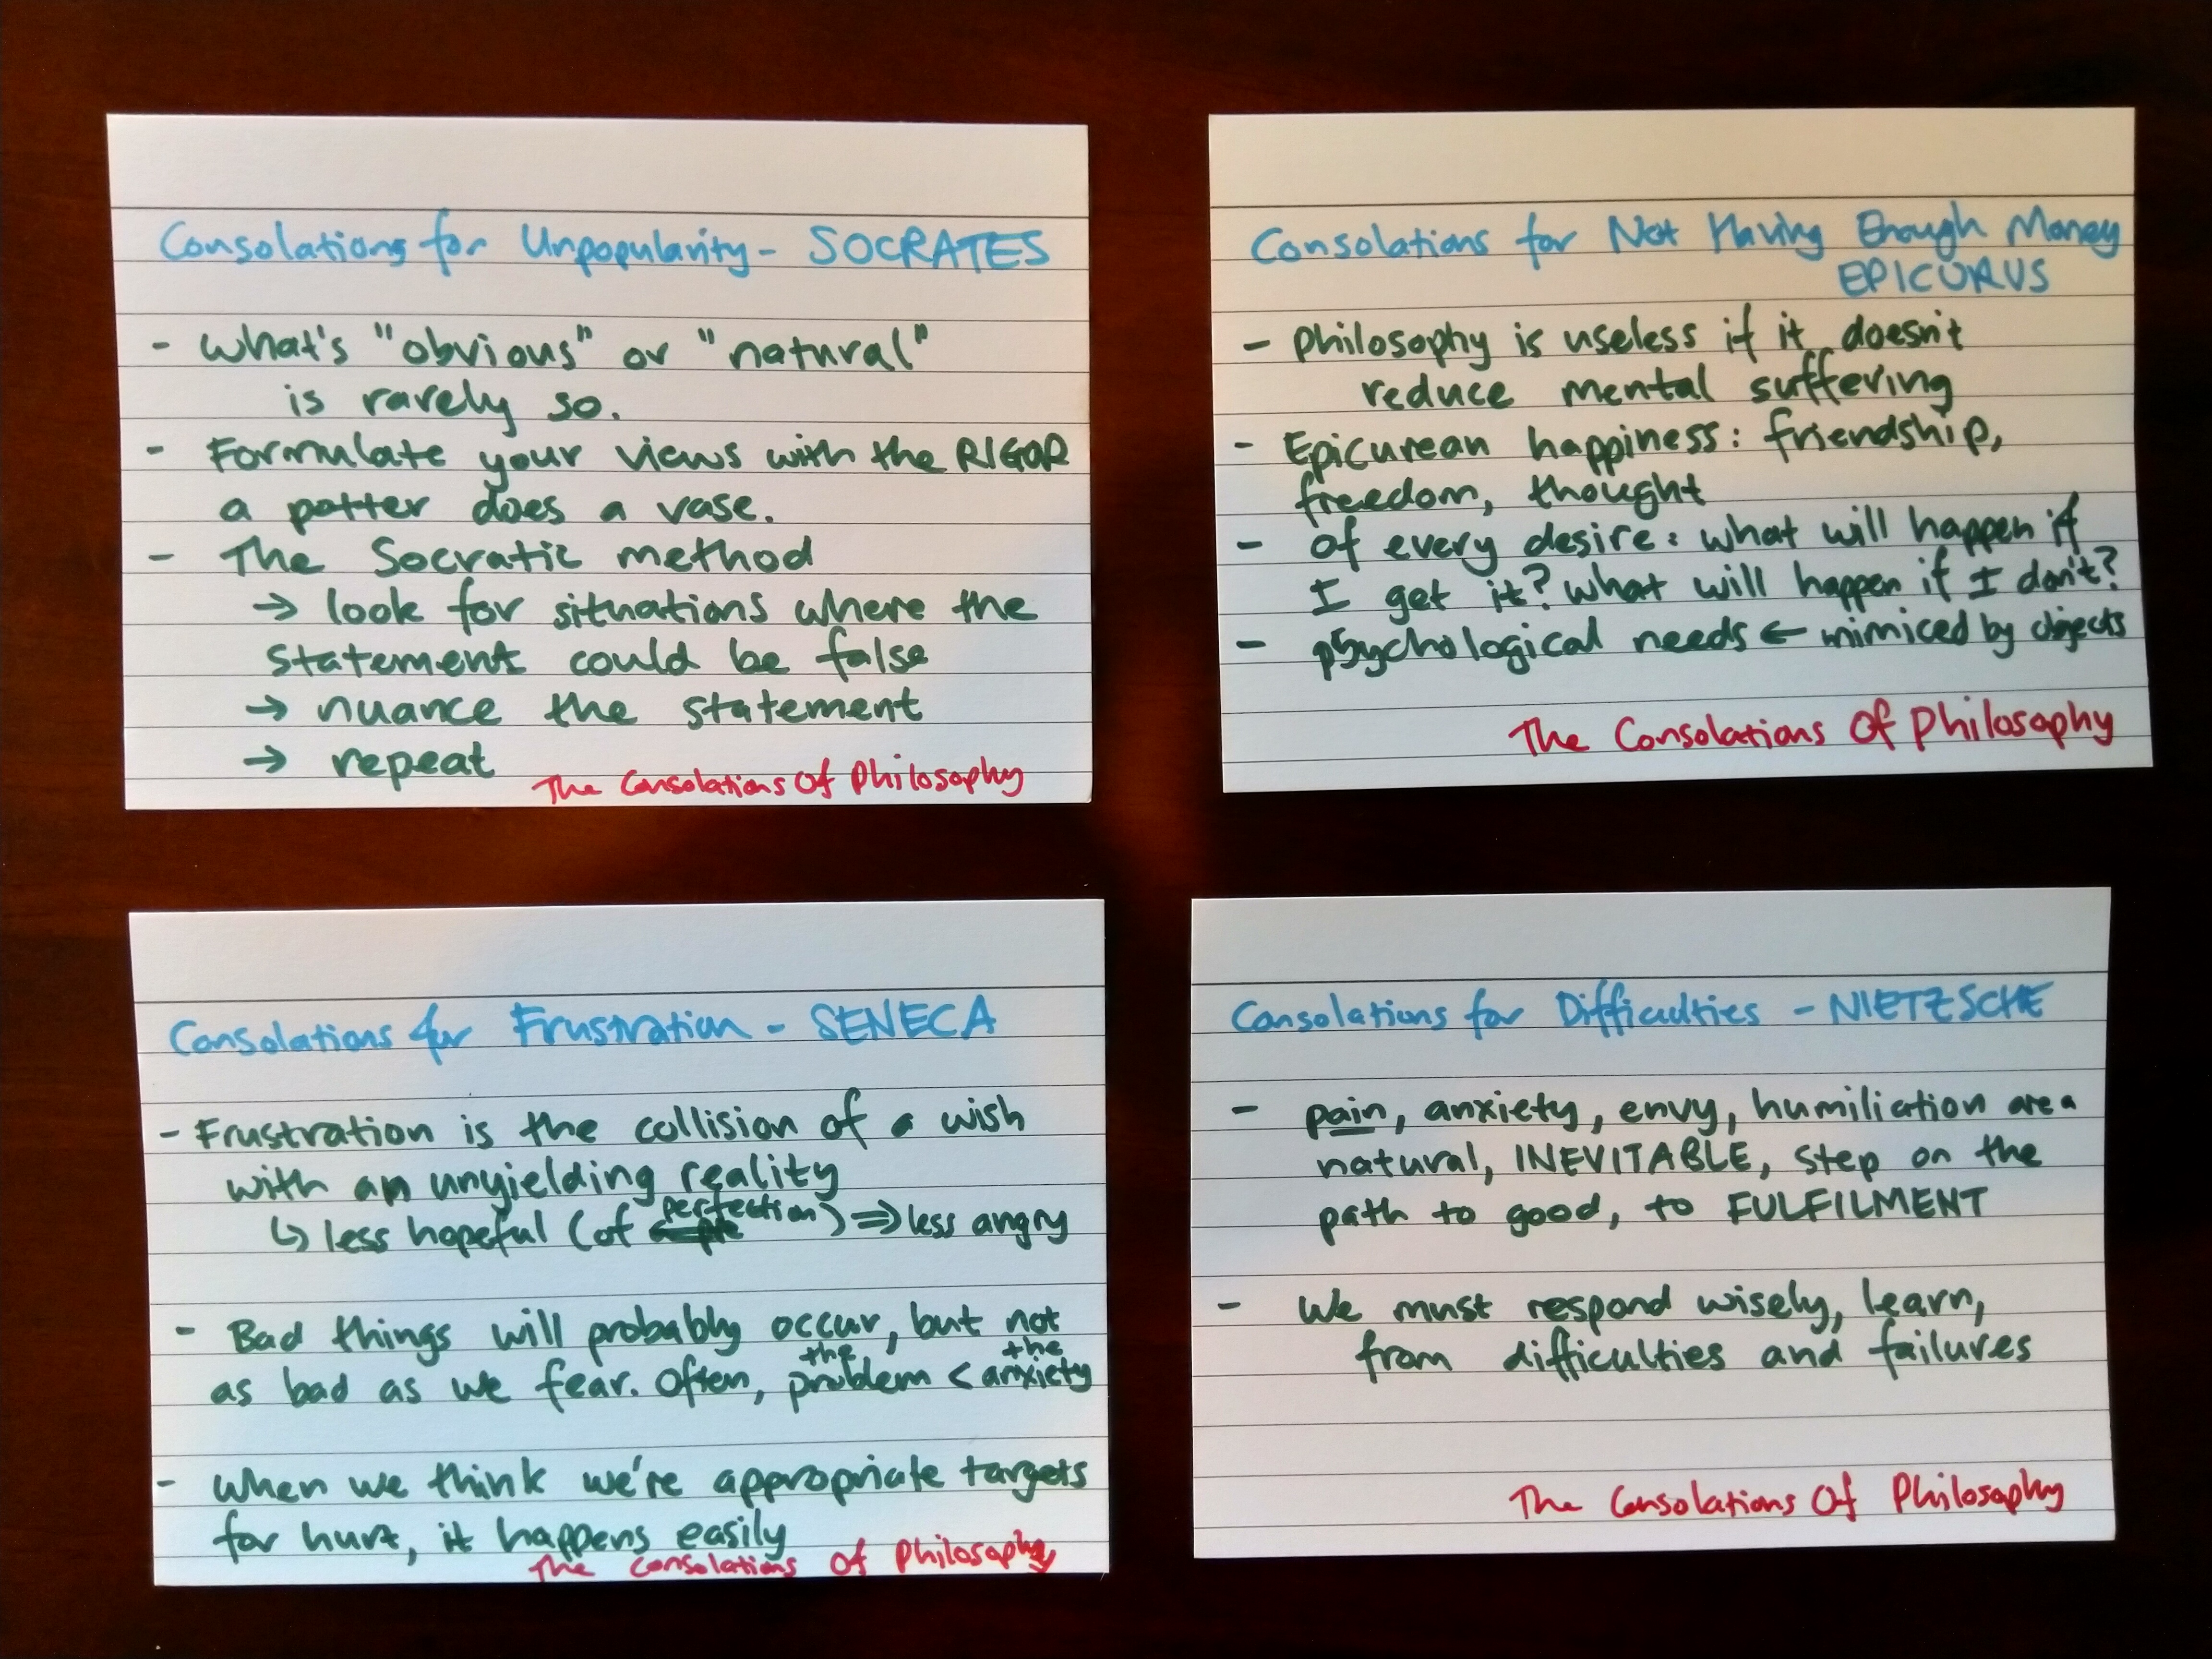 Consolations for Unpopularity - SOCRATES
- What's "obvious" or "natural"
is rarely so.
- Formulate your views with the RIGOR
a potter does a vase.
- The Socratic method
→ look for situations where the
statement could be false
→ nuance the statement
→ repeat
The Consolations Of Philosophy
Consolations for Not Having Enough Money
EPICURUS
- Philosophy is useless if it doesn't
reduce mental suffering
- Epicurean happiness: friendship,
freedom, thought
- of every desire: what will happen if
I get it? What will happen if I don't?
- psychological needs ← mimiced by objects
The Consolations Of Philosophy
Consolations for Frustration - SENECA
- Frustration is the collision of a wish
with an unyielding reality
↳ less hopeful (of perfection) ⇒ less angry
- Bad things will probably occur, but not
as bad as we fear. Often, the problem < the anxiety
- When we think we're appropriate targets
for hurt, it happens easily
The Consolations Of Philosophy
Consolations for Difficulties - NIETZSCHE
- pain, anxiety, envy, humiliation are a
natural, INEVITABLE, step on the
path to good, to FULFILMENT
- We must respond wisely, learn,
from difficulties and failures
The Consolations Of Philosophy